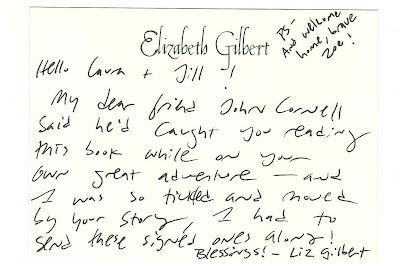 Elizabeth Gilbert
PS-
And welcome
home, brave
Zoe!
Hello Laura + Jill -!
My dear friend John Cornell
said he'd caught you reading
this book while on your
own great adventure — and
I was so tickled and moved
by your story, I had to
send these signed ones along!
Blessings! - Liz Gilbert